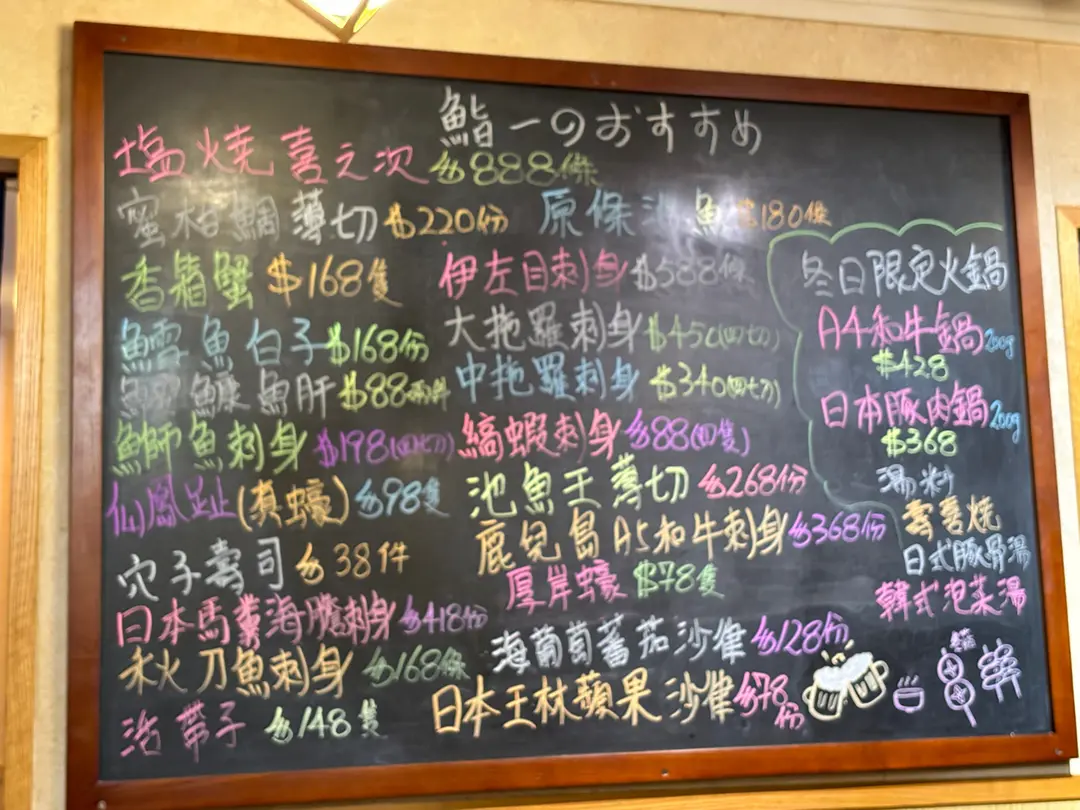 鮨一のおすすめ
塩燒喜之次 $888條
蜜柑鯛薄切 $220份
香箱蟹 $168隻
鱈魚白子 $168份
鮟鱇魚肝 $88兩件
鰤魚刺身 $198(四切)
仙鳳趾(真蠔) $98隻
穴子壽司 $38件
日本馬糞海膽刺身 $418份
秋刀魚刺身 $168條
活帶子 $148隻
原條 魚 $180條
伊左目刺身 $588條
大拖羅刺身 $450(四切)
中拖羅刺身 $340(四切)
縞蝦刺身 $88(四隻)
池魚王薄切 $268份
鹿兒島A5和牛刺身 $368份
厚岸蠔 $78隻
海葡萄蕃茄沙律 $128份
日本王林蘋果沙律 $78份
冬日限定火鍋
A4和牛鍋 200g
$428
日本豚肉鍋 200g
$368
湯料
壽喜燒
日式豚骨湯
韓式泡菜湯